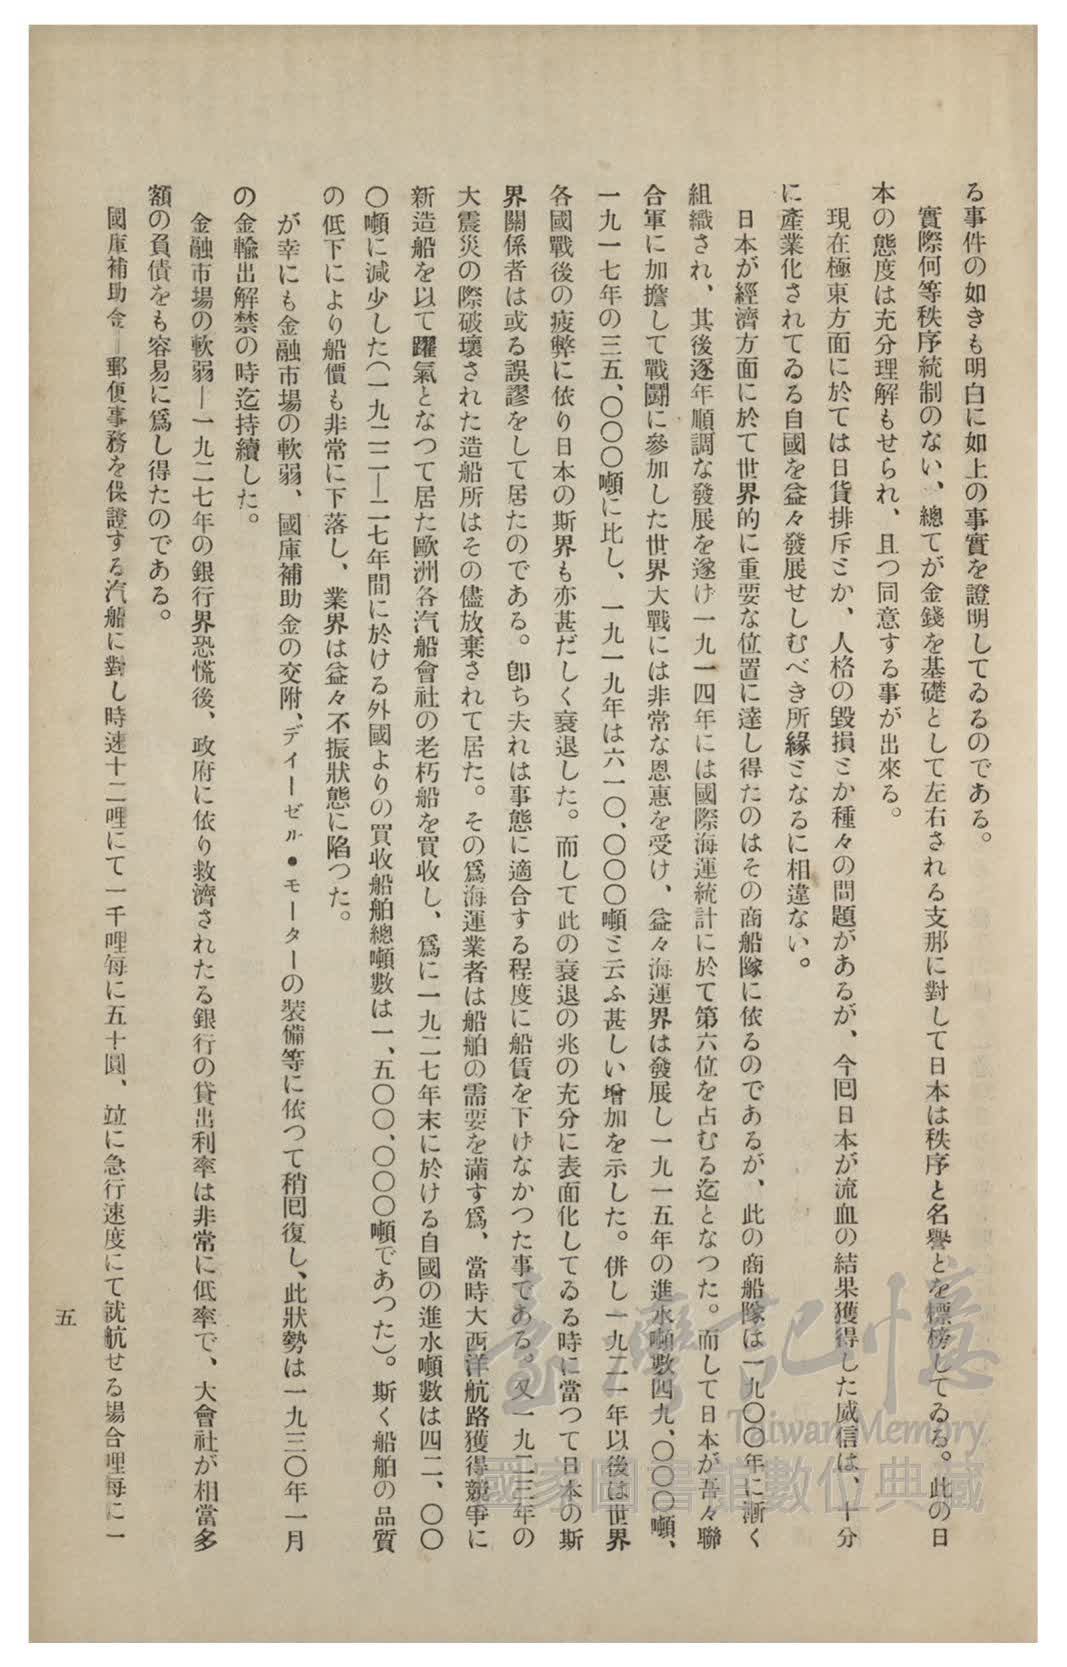 る事件の如きも明白に如上の事實を證明してゐるのである。
實際何等秩序統制のない、總てが金錢を基礎として左右される支那に對して日本は秩序と名譽とを標榜してゐる。此の日
本の態度は充分理解もせられ、且つ同意する事が出來る。
現在極東方面に於ては日貨排斥とか、人格の毀損とか種々の問題があるが、今囘日本が流血の結果獲得した威信は、十分
に產業化されてゐる自國を益々發展せしむべき所緣となるに相違ない。
日本が經濟方面に於て世界的に重要な位置に達し得たのはその商船隊に依るのであるが、此の商船隊は一九〇〇年に漸く
組織され、其後逐年順調な發展を遂げ一九一四年には國際海運統計に於て第六位を占むる迄となつた。而して日本が吾々聯
合軍に加擔して戰鬪に參加した世界大戰には非常な恩惠を受け、益々海運界は發展し一九一五年の進水噸數四九、〇〇〇噸、
一九一七年の三五、〇〇〇噸に比し、一九一九年は六一〇、〇〇〇噸と云ふ甚しい增加を示した。併し一九二一年以後は世界
各國戰後の疲弊に依り日本の斯界も亦甚だしく衰退した。而して此の衰退の兆の充分に表面化してゐる時に當つて日本の斯
界關係者は或る誤謬をして居たのである。卽ち夫れは事態に適合する程度に船賃を下げなかつた事である。又一九二三年の
大震災の際破壞された造船所はその儘放棄されて居た。その爲海運業者は船舶の需要を滿す爲、當時大西洋航路獲得競爭に
新造船を以て躍氣となつて居た歐洲各汽船會社の老朽船を買收し、爲に一九二七年末に於ける自國の進水噸數は四二、〇〇
〇噸に減少した（一九二二—二七年間に於ける外國よりの買收船舶總噸數は一、五〇〇、〇〇〇噸であつた）。斯く船舶の品質
の低下により船價も非常に下落し、業界は益々不振狀態に陷つた。
が幸にも金融市場の軟弱、國庫補助金の交附、ディーゼル・モーターの裝備等に依つて稍囘復し、此狀勢は一九三〇年一月
の金輸出解禁の時迄持續した。
金融市場の軟弱—一九二七年の銀行界恐慌後、政府に依り救濟されたる銀行の貸出利率は非常に低率で、大會社が相當多
額の負債をも容易に爲し得たのである。
國庫補助金—郵便事務を保證する汽船に對し時速十二哩にて一千哩每に五十圓、竝に急行速度にて就航せる場合哩每に一
五
臺灣記憶
Taiwan Memory
國家圖書館數位典藏